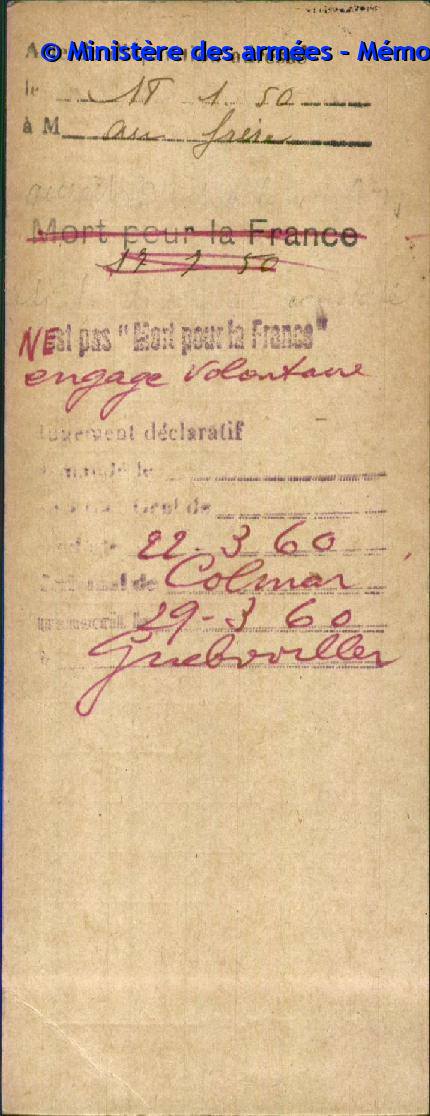 © Ministère des armées - Mémo
le 17 1 50
à M au frère
Mort pour la France
17 1 50
NEst pas "Mort pour la France"
engagé volontaire
Jugement déclaratif
demandé le
Gént de
22-3 60
Tribunal de Colmar
transcrit le 29-3 60
Guebwiller